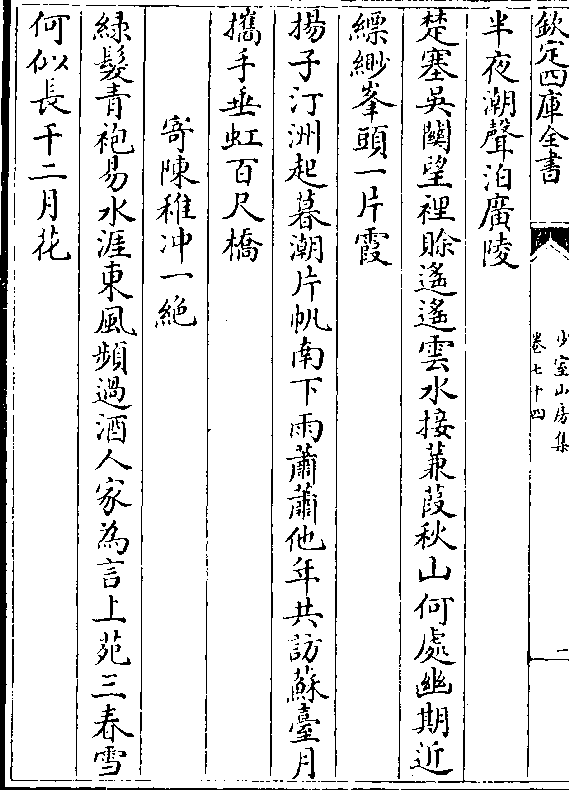 欽定四庫全書
少室山房集
卷七十四
二
半夜潮聲泊廣陵
楚塞吳關望裡賒遙遙雲水接蒹葭秋山何處幽期近
縹緲峯頭一片霞
揚子汀洲起暮潮片帆南下雨蕭蕭他年共訪蘇臺月
攜手垂虹百尺橋
寄陳稚冲一絶
緑髮青袍易水涯東風頻過酒人家為言上苑三春雪
何似長干二月花